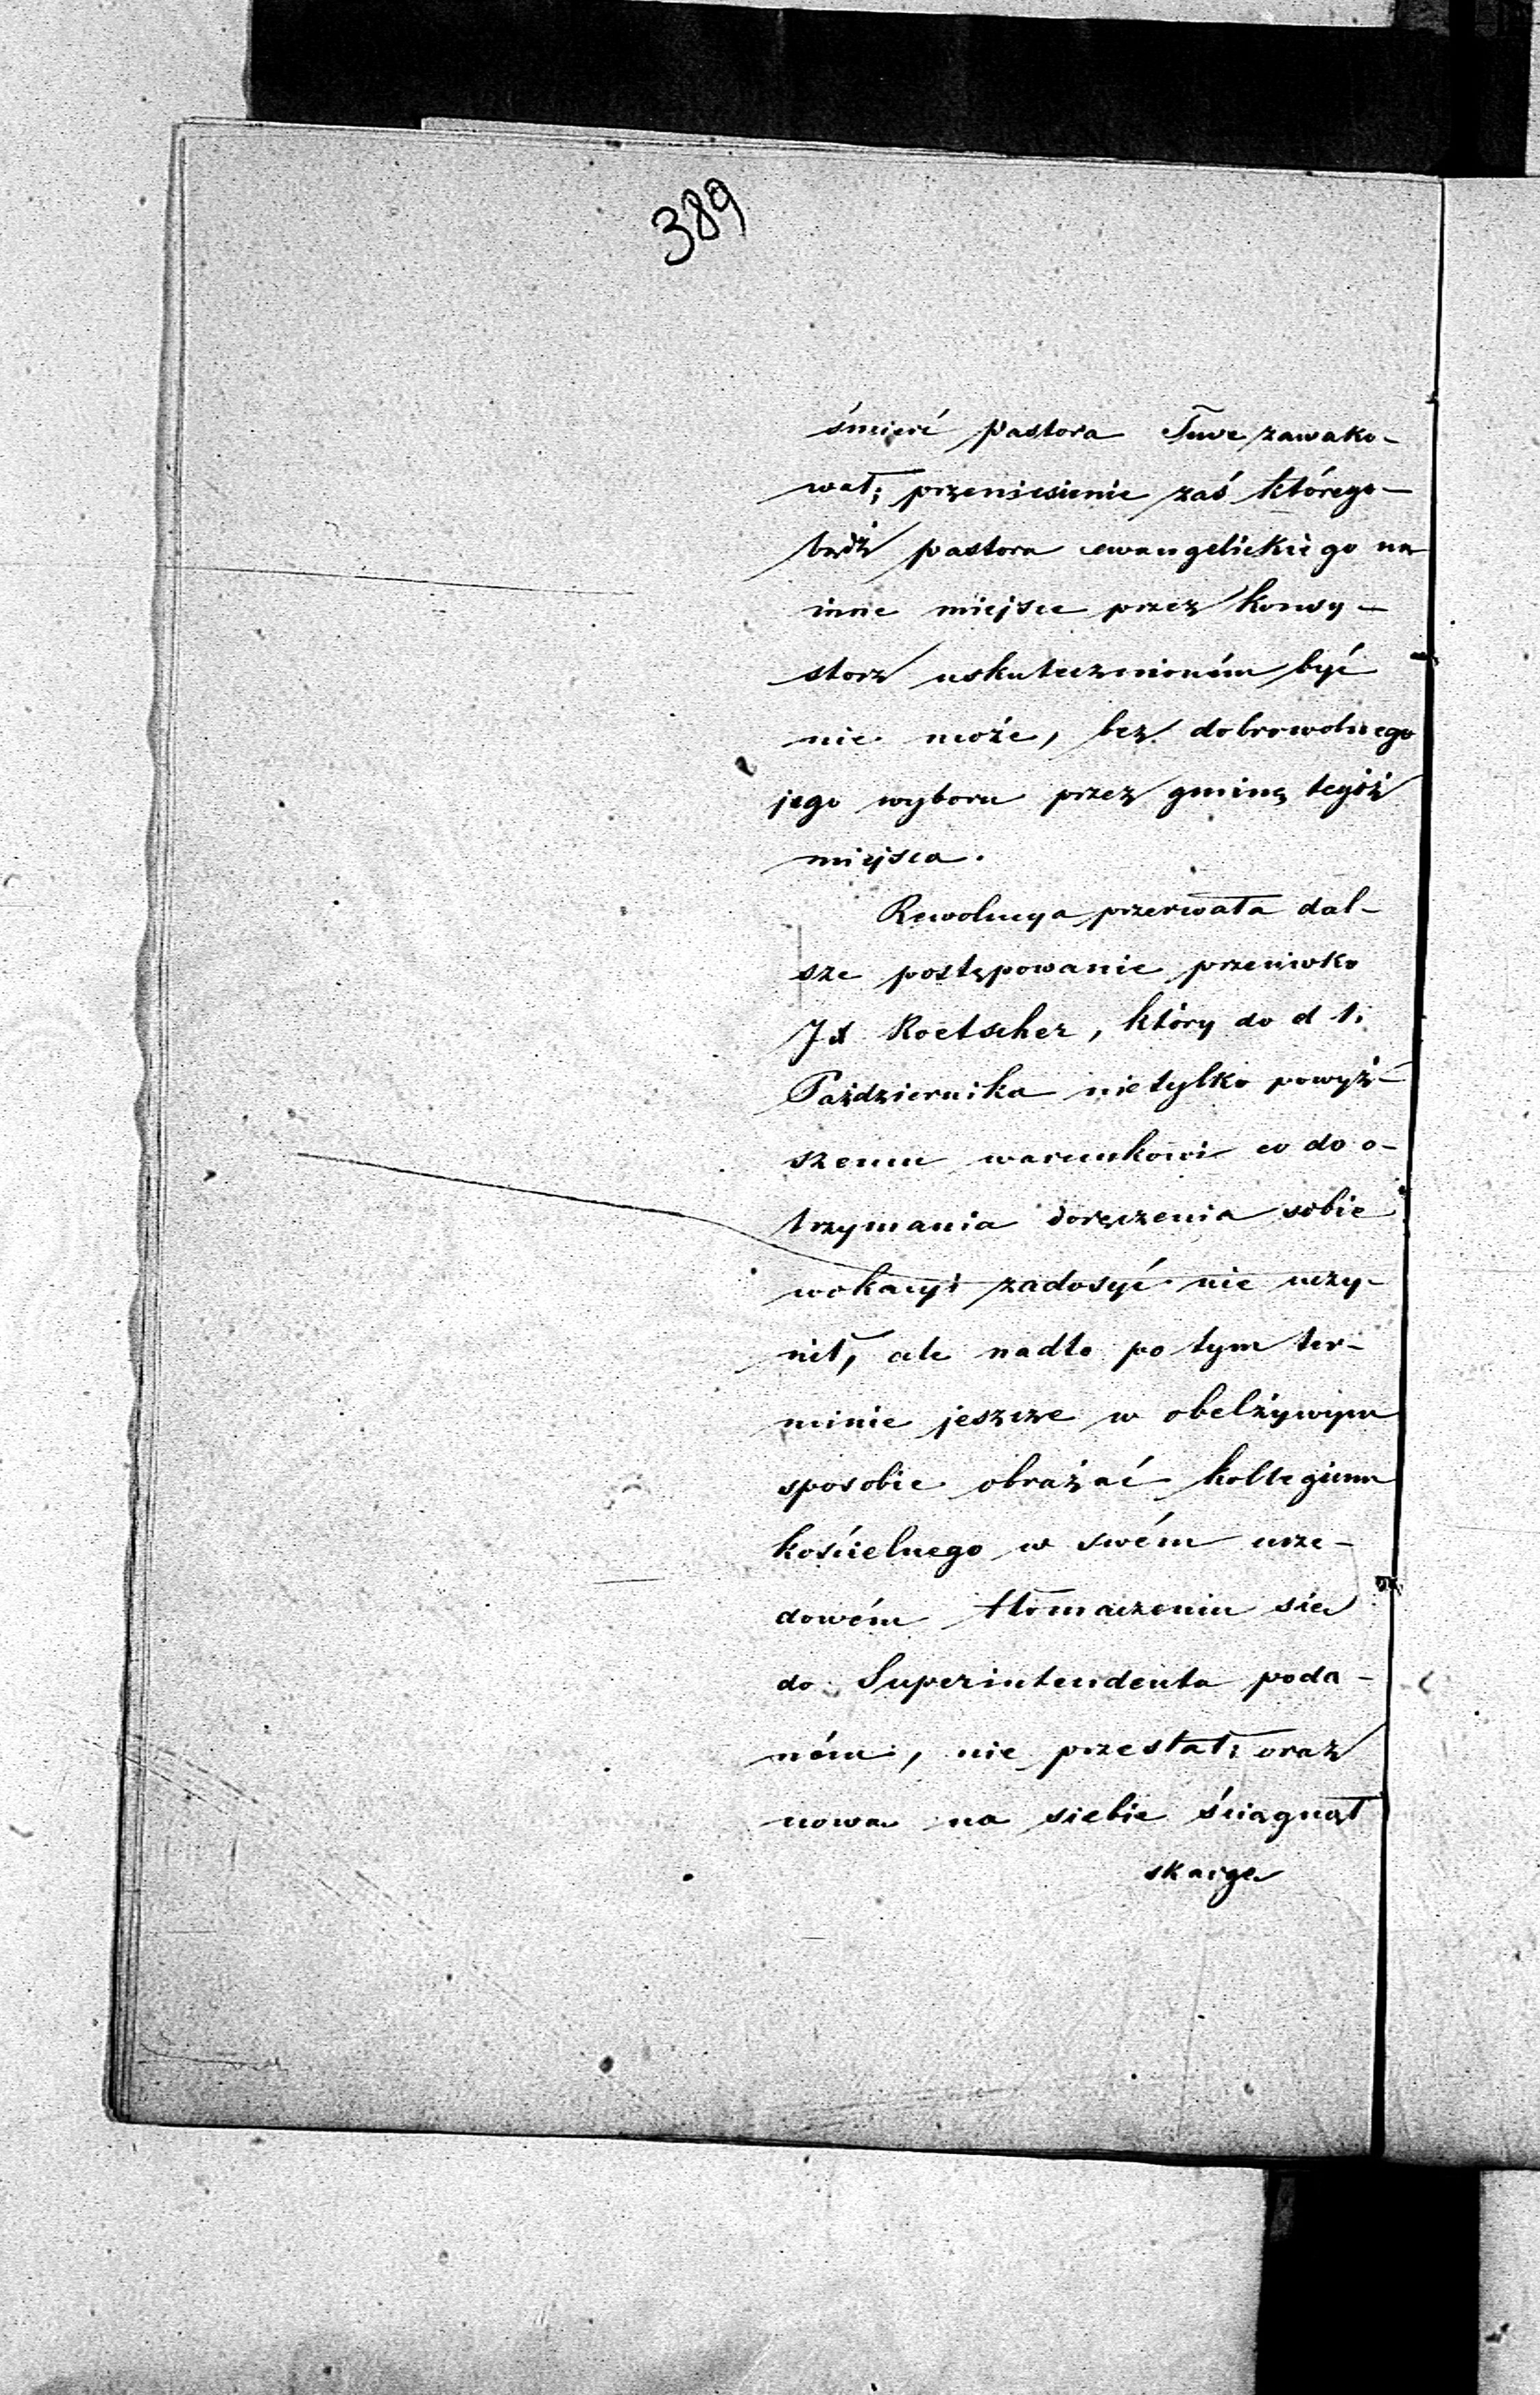 389
śmierć pastora Tuve zawako-
wał; przeniesienie zaś którego-
bądź pastora ewangelickiego na
inne miejsce przez konsy-
storz uskutecznioném być
nie może, bez dobrowolnego
jego wyboru przez gminę tegoż
miejsca.
Rewolucya przerwała dal-
sze postępowanie przeciwko
JX Roetscher, który do d 1.
Października nie tylko powyż-
szemu warunkowi co do o-
trzymania doręczenia sobie
wokacyi zadosyć nie uczy-
nił, ale nadto po tym ter-
minie jeszcze w obelżywym
sposobie obrażać kollegium
kościelnego w swém urze-
dowém tłomaczeniu sie
do Superintendenta poda-
ném, nie przestał; oraz
nowa na siebie ściągnął
skarge